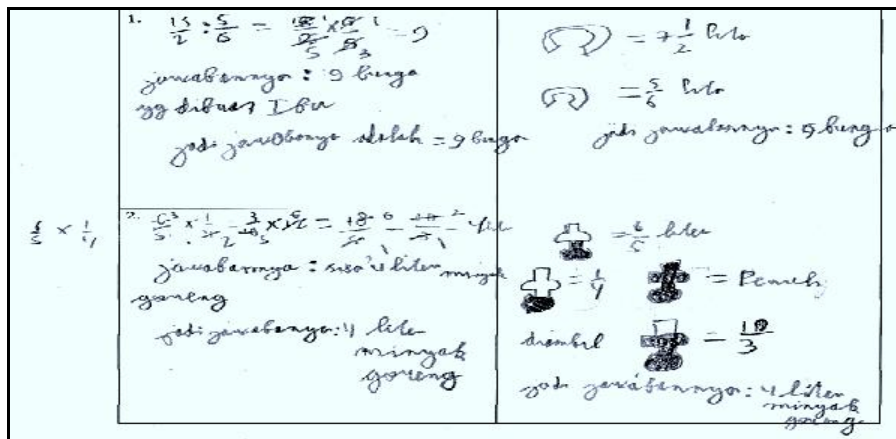 1. 15/2 : 5/6 = = 9
jawabannya : 9 bunga
yg dibuat Ibu
jadi jawabanya adalah = 9 bunga
= 7 1/2 Pita
= 5/6 Pita
jadi jawabannya : 9 bunga
6/5 × 1/4
2.
jawabannya : sisa 4 liter minyak
goreng
jadi jawabanya : 4 liter
minyak
goreng
= 6/5 liter
= 1/4 = Penuh
diambil = 10/3
jadi jawabannya : 4 liter
minyak
goreng